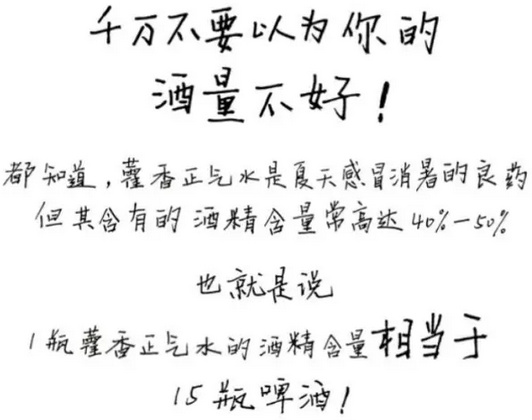 千万不要以为你的
酒量不好！
都知道，藿香正气水是夏天感冒消暑的良药
但其含有的酒精含量常高达40%-50%
也就是说
1瓶藿香正气水的酒精含量相当于
15瓶啤酒！